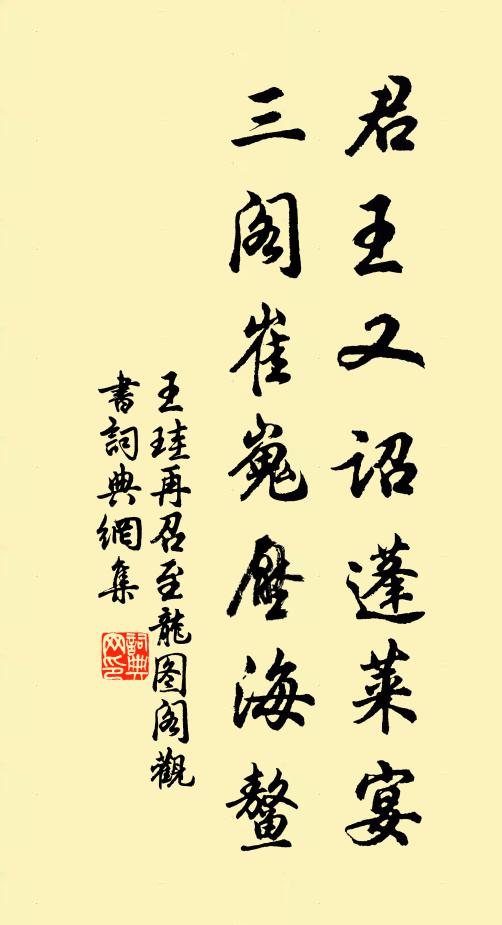 君王又詔蓬萊宴
三阁崔嵬壓海鼇
王珪再召至龍图阁觀
書詞典網集
詞典网印